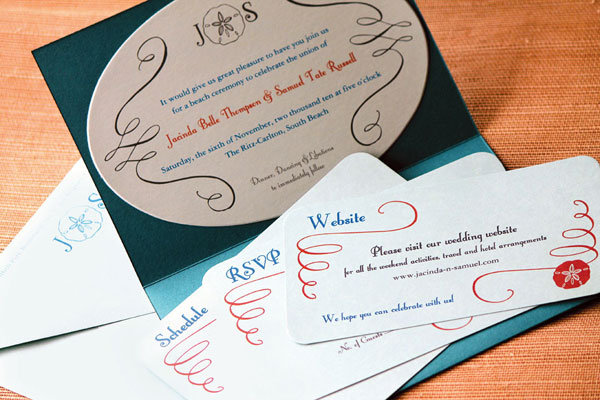 J S
It would give us great pleasure to have you join us
for a beach ceremony to celebrate the union of
Jacinda Belle Thompson & Samuel Tate Russell
Saturday, the sixth of November, two thousand ten at five o'clock
The Ritz-Carlton, South Beach
Dinner, Dancing & Libations
to immediately follow
J S
Schedule
RSVP
No. of Guests
Website
Please visit our wedding website
for all the weekend activities, travel and hotel arrangements
www.jacinda-n-samuel.com
We hope you can celebrate with us!